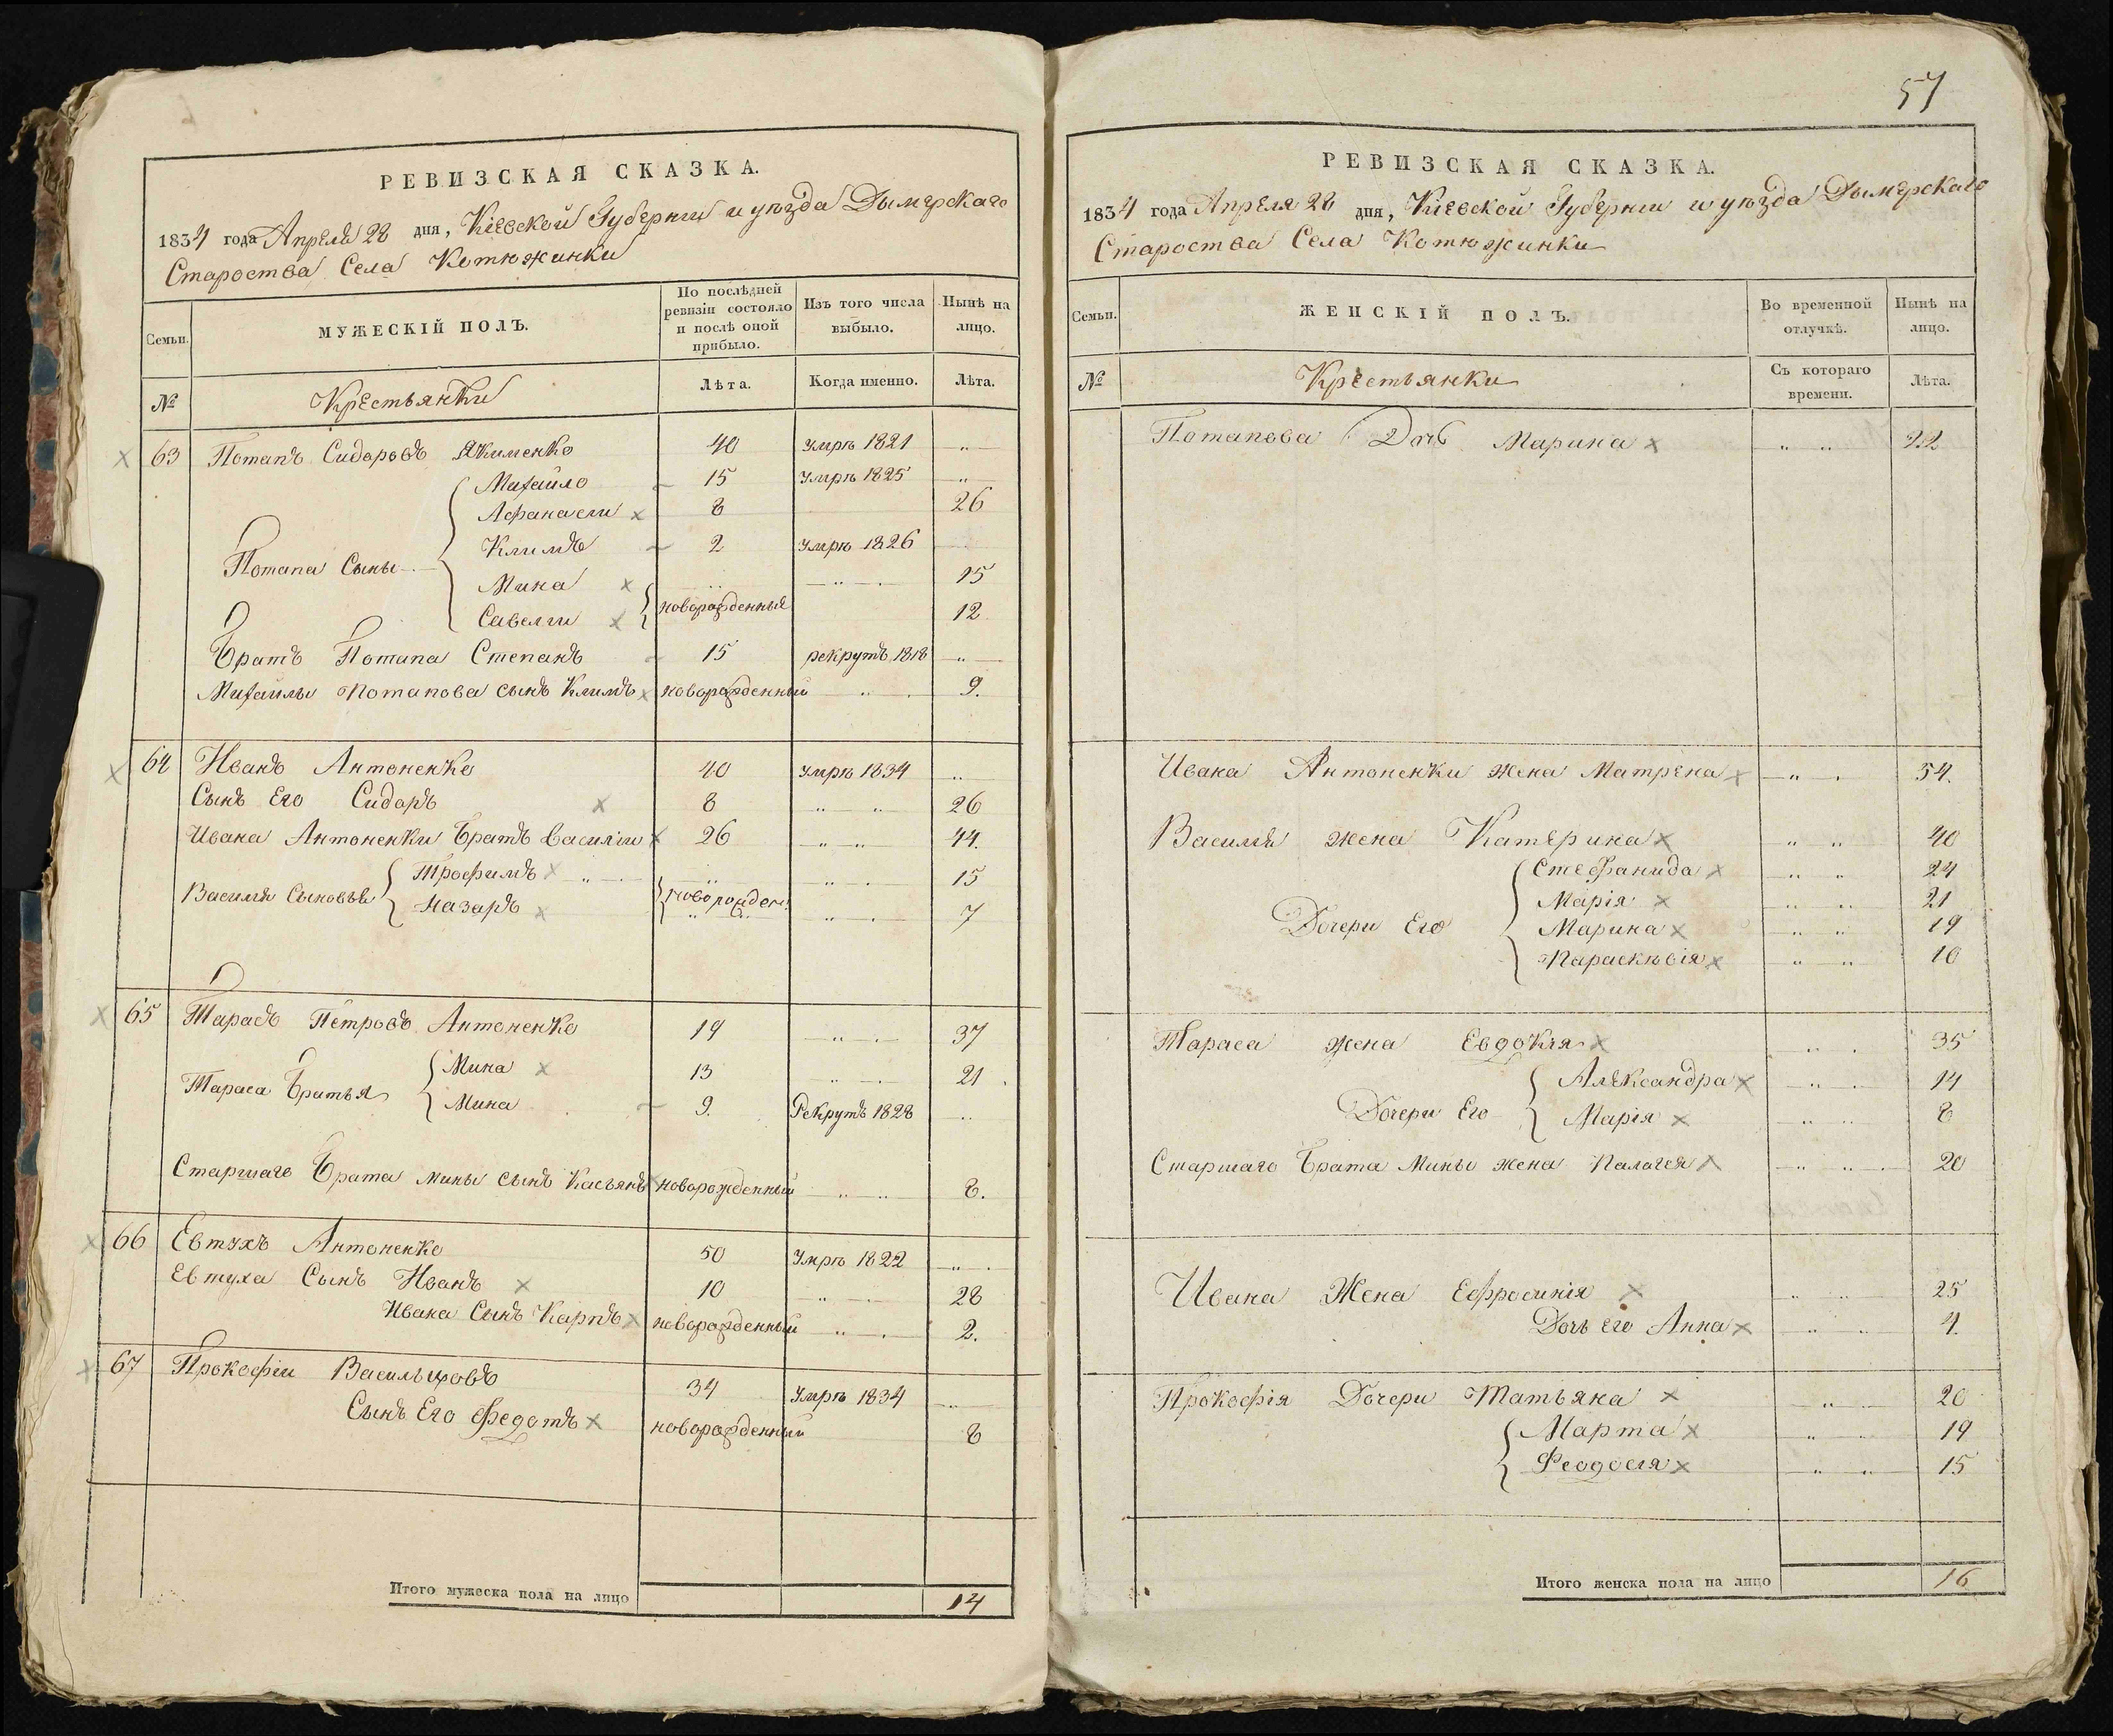 РЕВИЗСКАЯ СКАЗКА.
1834 года Апреля 28 дня, Кіевской Губерніи и уѣзда Дымерскаго
Староства Села Котюжинки
Семьи. МУЖЕСКІЙ ПОЛЪ. По послѣдней ревизіи состояло и послѣ оной прибыло. Изъ того числа выбыло. Нынѣ на лицо.
№ Крестьянки Лѣта. Когда именно. Лѣта.
63 Потапъ Сидоровъ Якименко 40 Умрѣ 1821 „
Михайло 15 Умрѣ 1825 „
Афанасеи 8 26
Климъ 2 Умрѣ 1826
Потапа Сыны Мина „ „ 15
Савелии новорожденныя 12
Братъ Потапа Степанъ 15 рекрутъ 1818 „
Михайлы Потапова сынъ Климъ новорожденный „ 9.
64 Иванъ Антоненко 40 умрѣ 1834 „
Сынъ Его Сидоръ 8 „ „ 26
Ивана Антоненки Братъ Василии 26 „ „ 44.
Василія Сыновья Трофимъ „ „ „ 15
Назаръ новорожден: „ 7
65 Тарасъ Петровъ Антоненко 19 „ 37
Тараса Братья Мина 13 „ 21
Мина 9. Рекрутъ 1828 „
Старшаго Брата Мины сынъ Касьянъ новорожденный „ „ 8.
66 Евтухъ Антоненко 50 Умрѣ 1822 „
Евтуха Сынъ Иванъ 10 „ 28
Ивана Сынъ Карпъ новорожденный „ 2.
67 Прокофіи Васильцовъ 34 Умрѣ 1834 „
Сынъ Его Федотъ новорожденный 8
Итого мужеска пола на лицо 14
57
РЕВИЗСКАЯ СКАЗКА.
1834 года Апреля 28 дня, Кіевской Губерніи и уѣзда Дымерскаго
Староства Села Котюжинки
Семьи. ЖЕНСКІЙ ПОЛЪ. Во временной отлучкѣ. Нынѣ на лицо.
№ Крестьянки Съ котораго времени. Лѣта.
Потапова Дочь Марина „ „ 22
Ивана Антоненки жена Матрена „ 54.
Василія жена Катерина „ „ 40
Стефанида „ „ 24
Марія „ „ 21
Дочери Его Марина „ „ 19
Параскѣвія „ „ 10
Тараса жена Евдокія „ 35
Александра „ 14
Дочери Его Марія „ „ 8
Старшаго Брата Мины жена Палагея „ „ 20
Ивана Жена Ефросинія „ „ 25
Дочь Его Анна „ „ 4.
Прокофія Дочери Татьяна „ 20
Марта „ 19
Феодосія „ „ 15
Итого женска пола на лицо 16